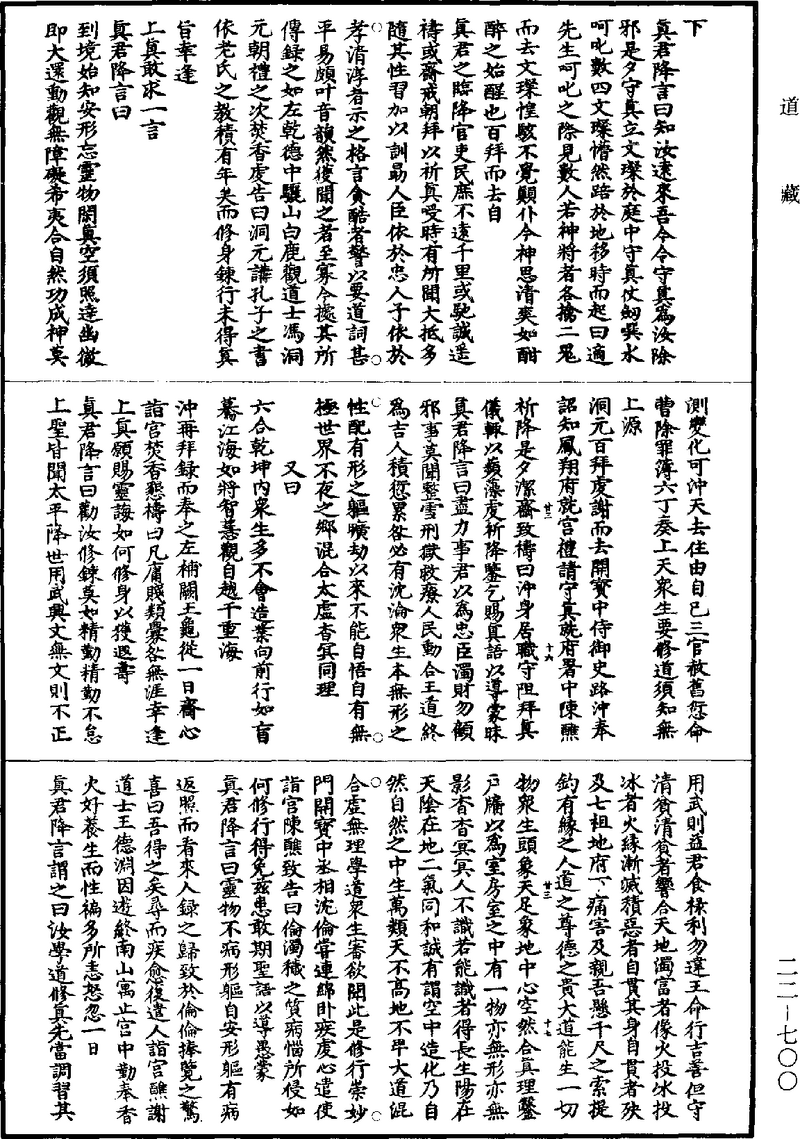 道藏
下
真君降言曰知汝遠來吾今令守真為汝除
邪是夕守真立文璨於庭中守真仗劒噀水
呵叱數四文璨懵然踣於地移時而起曰適
先生呵叱之際見數人若神將者各擒二鬼
而去文璨惶駭不覺顛仆今神思清爽如酣
醉之始醒也百拜而去自
真君之臨降官吏民庶不遠千里或馳誠遥
禱或齋戒朝拜以祈真受時有所聞大抵多
隨其性習加以訓勗人臣依於忠人子依於
孝清淳者示之格言貪酷者警以要道詞甚
平易頗叶音韻然後聞之者至寡今摭其所
傳録之如左乾德中驪山白鹿觀道士馮洞
元朝禮之次焚香虔告曰洞元講孔子之書
依老氏之教積有年矣而修身鍊行未得真
旨幸逢
上真敢求一言
真君降言曰
到境始知安形忘靈物閑真空須照達幽微
即大還動觀無障礙希夷合自然功成神莫
測變化可沖天去住由自己三官赦舊愆命
曹除罪簿六丁奏上天衆生要修道須知無
上源
洞元百拜虔謝而去開寶中侍御史路沖奉
詔知鳳翔府就宫禮請守真就府署中陳醮
祈降是夕潔齋致禱曰沖身居職守阻拜真
儀輒以蘋藻虔祈降鑒乞賜真語以導蒙昧
真君降言曰盡力事君以為忠臣濁財勿顧
邪事莫聞整雪刑獄救療人民動合王道終
為吉人積愆累咎必有沈淪衆生本無形之
性配有形之軀曠劫以來不能自悟自有無
極世界不夜之鄉混合太虛杳冥同理
又曰
六合乾坤内衆生多不會造業向前行如盲
驀江海如將智慧觀自越千重海
沖再拜録而奉之左補闕王龜從一日齋心
詣宫焚香懇禱曰凡庸賤類釁咎無涯幸逢
上真願賜靈誨如何修身以獲遐壽
真君降言曰勸汝修鍊莫如精勤精勤不怠
上聖皆聞太平降世用武興文無文則不正
用武則益君食祿利勿違王命行吉善但守
清貧清貧者響合天地濁富者像火投冰投
冰者火緣漸滅積惡者自貫其身自貫者殃
及七祖地府下痛害及親吾懸千尺之索提
釣有緣之人道之尊德之貴大道能生一切
物衆生頭象天足象地中心空然合真理鑿
戶牖以為室房室之中有一物亦無形亦無
影杳杳冥冥人不識若能識者得長生陽在
天陰在地二氣同和誠有謂空中造化乃自
然自然之中生萬類天不高地不卑大道混
合虛無理學道衆生審欲聞此是修行崇妙
門開寶中丞相沈倫嘗連綿卧疾虔心遣使
詣宫陳醮致告曰倫濁穢之質病惱所侵如
何修行得免兹患敢期聖語以導愚蒙
真君降言曰靈物不病形軀自安形軀有病
返照而看來人録之歸致於倫倫捧覽之驚
喜曰吾得之矣尋而疾愈後遣人詣宫醮謝
道士王德淵因遊終南山寓止宫中勤奉香
火好養生而性褊多所恚怒忽一日
真君降言謂之曰汝學道修真先當調習其
二二－七〇〇